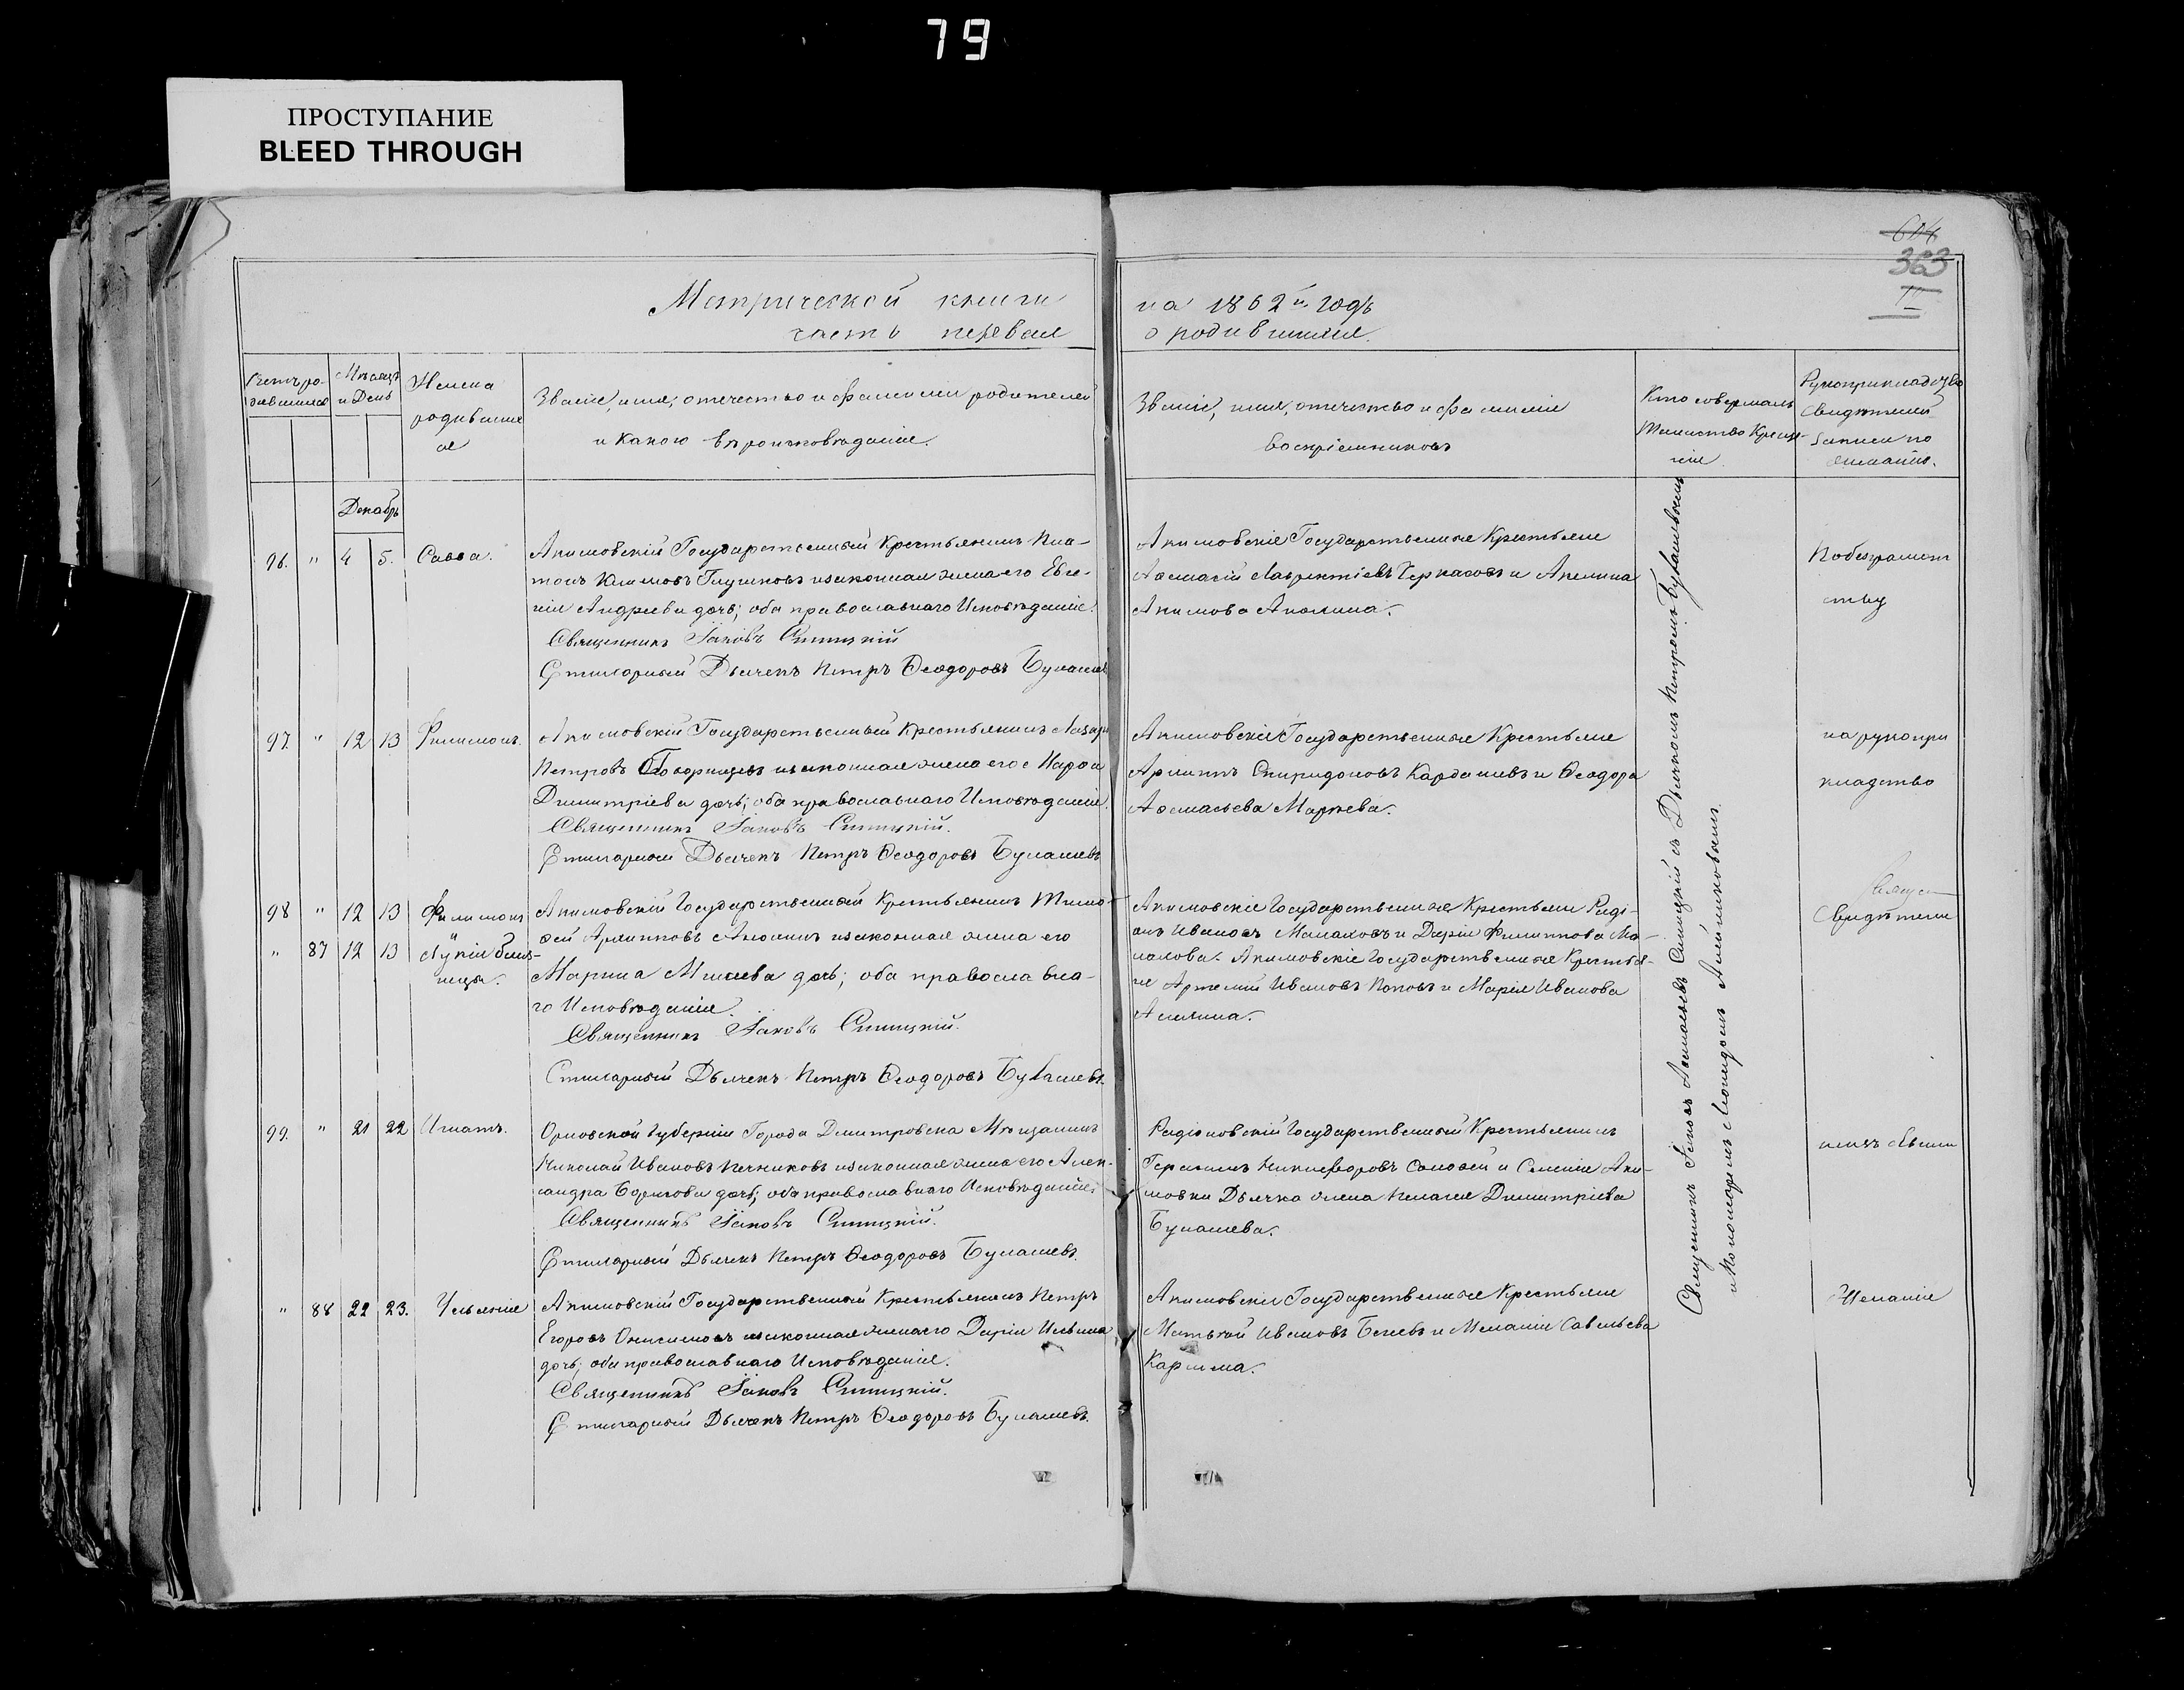 79
ПРОСТУПАНИЕ
BLEED THROUGH
614
363
II
Метрической книги на 1862й годъ
часть первая о родившихся.
Счетъ родившихся
Мѣсяцъ и День
Имена родившихся
Званіе, имя, отечество и фамилія родителей
и какого вѣроисповѣданія.
Званіе, имя, отечество и фамилія
воспріемниковъ
Кто совершалъ
Таинство Креще-
нія.
Рукоприкладство
свидѣтелей
записи по
желанію.
Декабрь
96. " 4 5. Савва.
Акимовскій Государственный Крестьянинъ Пла-
тонъ Климовъ Глушковъ и законная жена его Евге-
нія Андреева дочь; оба православнаго Исповѣданія.
Священникъ Іаковъ Синицкій
Стихарный Дьячекъ Петръ Ѳеодоровъ Булашевъ
Акимовскіе Государственные Крестьяне
Аѳанасій Лаврентіевъ Черкасовъ и Акелина
Акимова Анохина.
По безграмот
ству
97. " 12 13 Филимонъ.
Акимовскій Государственный Крестьянинъ Лазарь
Петровъ и законная жена его
Димитріева дочь; оба православнаго Исповѣданія.
Священникъ Іаковъ Синицкій.
Стихарный Дьячекъ Петръ Ѳеодоровъ Булашевъ
Акимовскіе Государственные Крестьяне
Архиппъ Спиридоновъ Кардашевъ и Ѳеодора
Аѳанасьева Маркева.
на рукопри
кладство
98 " 12 13 Филимонъ
" 87 12 13 Лукія близ-
нецы.
Акимовскій Государственный Крестьянинъ Тимо-
ѳей Архипповъ Анохинъ и законная жена его
Марина Мишева дочь; оба православна-
го Исповѣданія.
Священникъ Іаковъ Синицкій.
Стихарный Дьячекъ Петръ Ѳеодоровъ Булашевъ.
Акимовскіе Государственные Крестьяне Раді-
онъ Ивановъ Малаховъ и Дарія Филиппова Ма-
лахова. Акимовскіе Государственные Крестья-
не Артемій Ивановъ Поповъ и Марія Иванова
Свидѣтели
99. " 21 22 Игнатъ.
Орловской Губерніи Города Дмитровска Мѣщанинъ
Николай Ивановъ Печниковъ и законная жена его Алек-
сандра Борисова дочь; оба православнаго Исповѣданія.
Священникъ Іаковъ Синицкій.
Стихарный Дьячекъ Петръ Ѳеодоровъ Булашевъ.
Радіоновскій Государственный Крестьянинъ
Герасимъ Никифоровъ Соловей и Селенія Аки-
мовки Дьячка жена Пелагея Димитріева
Булашева.
" 88 22 23. Ульянія
Акимовскій Государственный Крестьянинъ Петръ
Егоровъ Онисимовъ и законная жена его Дарія Ильина
дочь; оба православнаго Исповѣданія.
Священникъ Іаковъ Синицкій.
Стихарный Дьячекъ Петръ Ѳеодоровъ Булашевъ.
Акимовскіе Государственные Крестьяне
Матвѣй Ивановъ Бегевъ и Меланія Савельева
Карпина.
желанія
Священникъ Іаковъ Аѳанасьевъ Синицкій съ Дьячкомъ Петромъ Булашевымъ
и Пономаремъ Леонидомъ